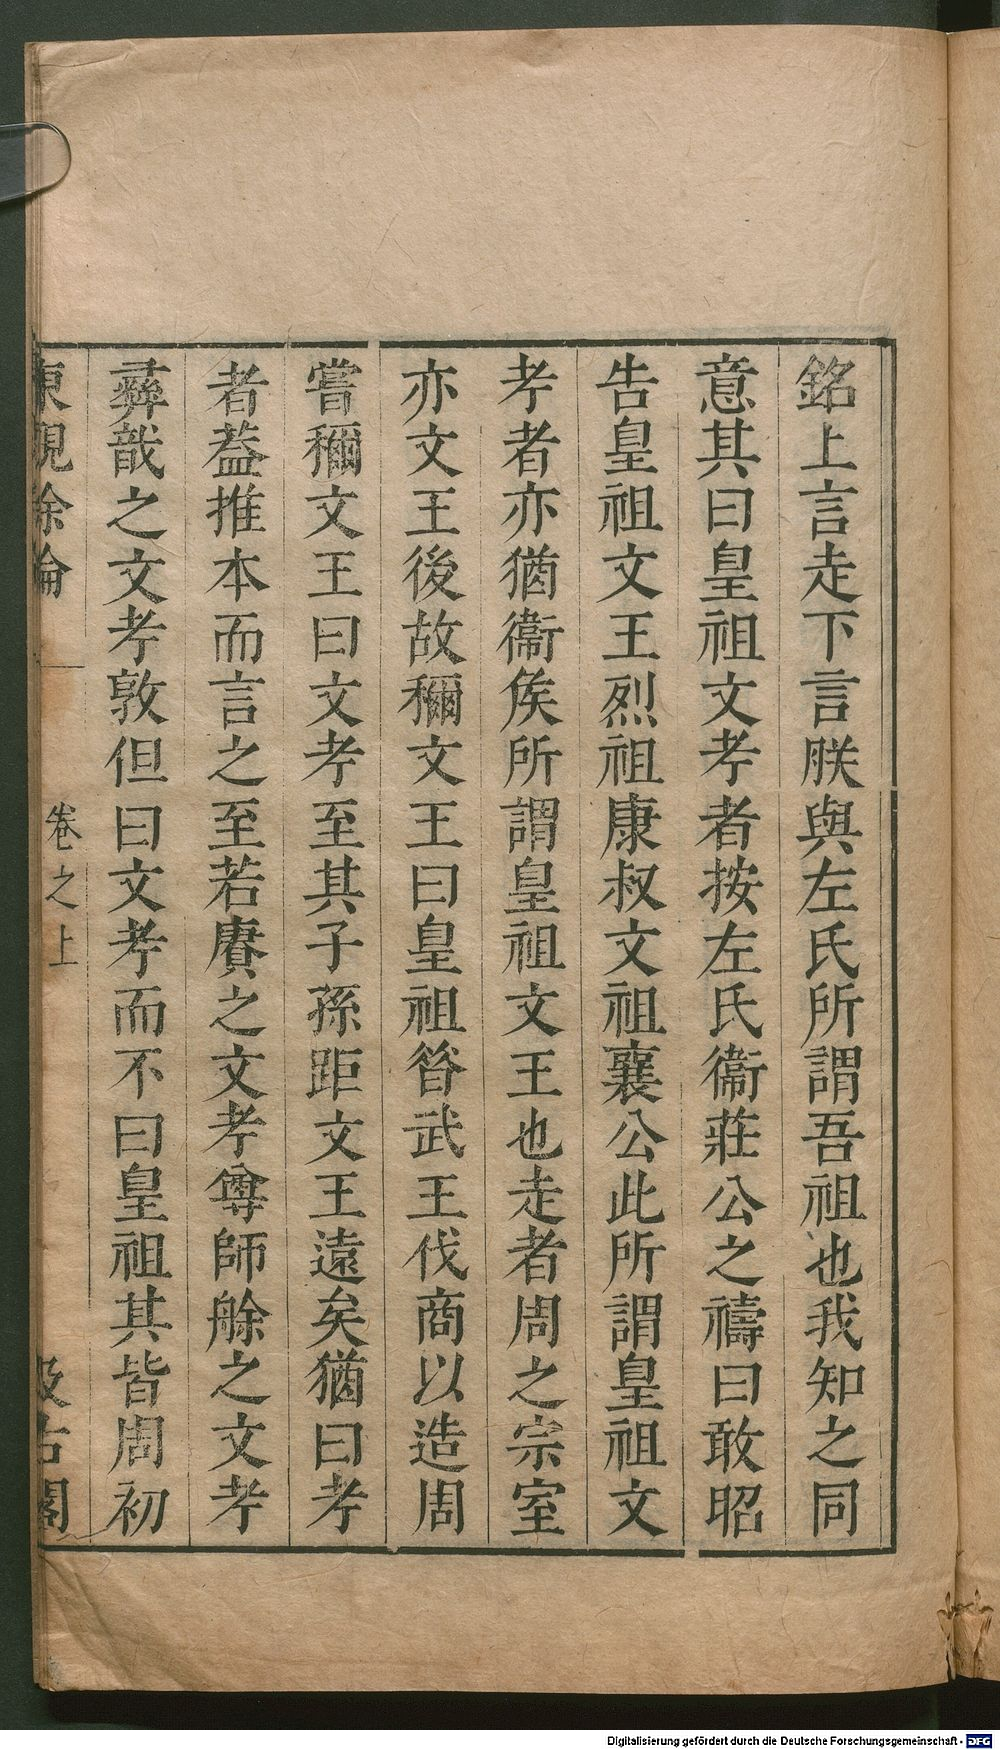 銘上言走下言朕與左氏所謂吾祖也我知之同
意其曰皇祖文孝者按左氏衞莊公之禱曰敢昭
告皇祖文王烈祖康叔文祖襄公此所謂皇祖文
孝者亦猶衞矦所謂皇祖文王也走者周之宗室
亦文王後故稱文王曰皇祖昝武王伐商以造周
嘗稱文王曰文孝至其子孫距文王遠矣猶曰孝
者葢推本而言之至若賡之文孝尊師艅之文孝
彞戠之文孝敦但曰文孝而不曰皇祖其皆周初
東觀余論 卷之上 汲古閣
Digitalisierung gefördert durch die Deutsche Forschungsgemeinschaft - DFG